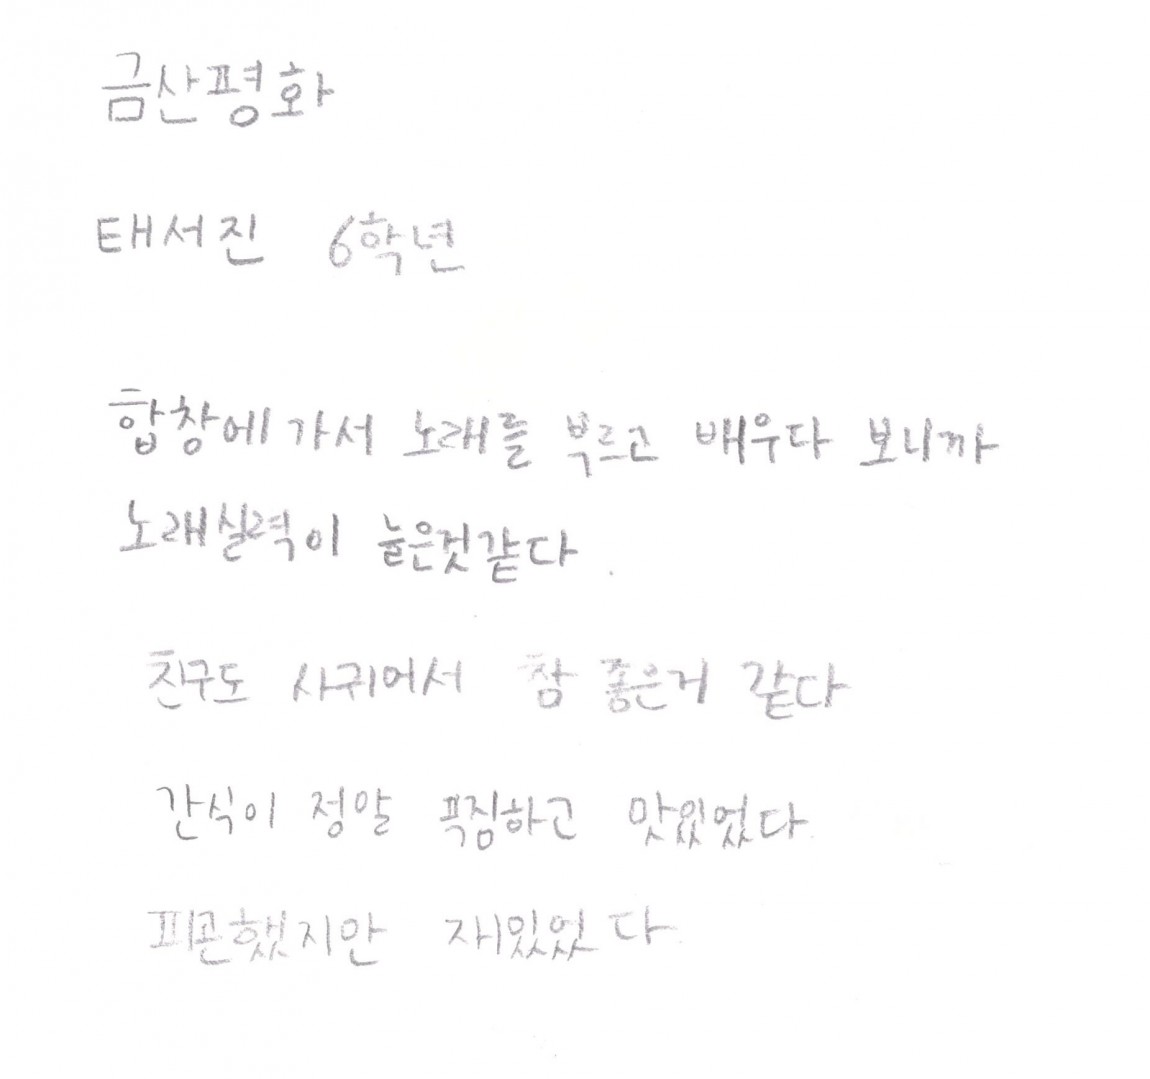 금산평화
태서진 6학년
합창에 가서 노래를 부르고 배우다 보니까
노래실력이 늘은것같다.
친구도 사귀어서 참 좋은거 같다
간식이 정말 푹짐하고 맛있었다.
피곤했지만 재밌었다.